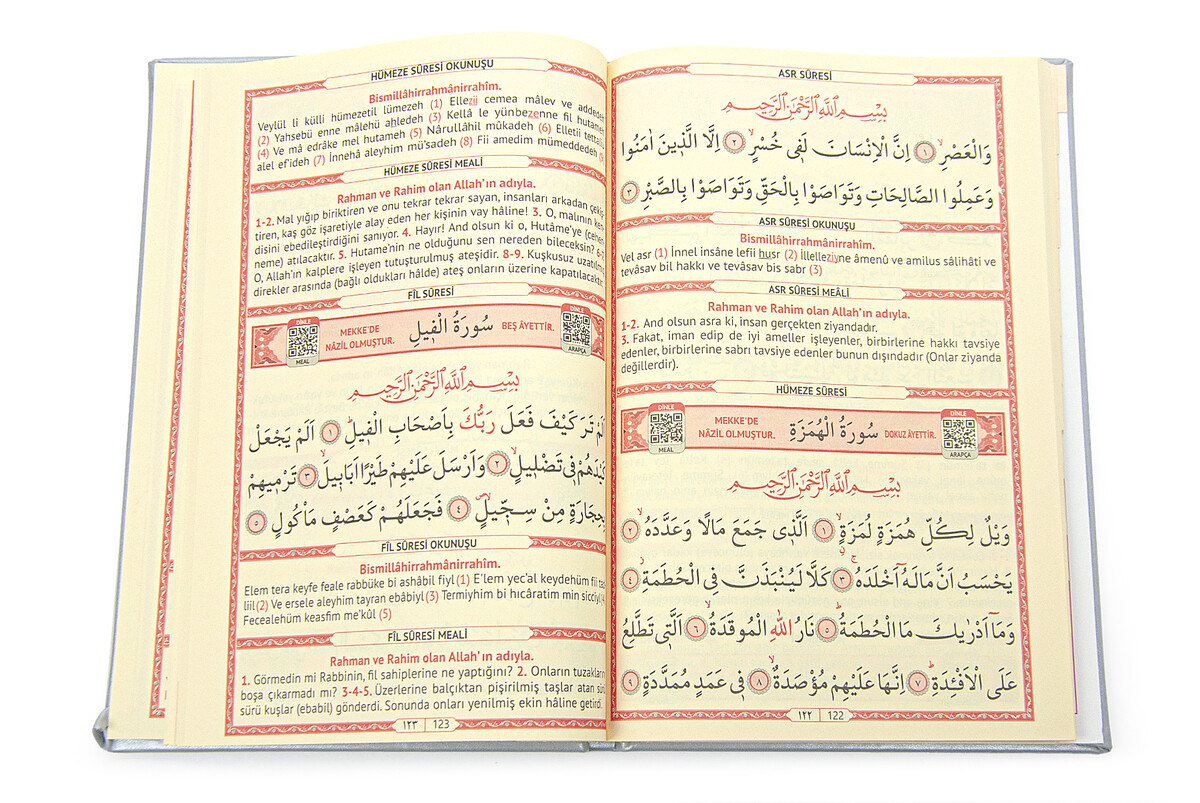 ASR SÛRESİ
بِسْمِ اللّٰهِ الرَّحْمٰنِ الرَّحِيمِ
وَالْعَصْرِۙ ﴿١﴾ اِنَّ الْاِنْسَانَ لَفٖى خُسْرٍۙ ﴿٢﴾ اِلَّا الَّذٖينَ اٰمَنُوا
وَعَمِلُوا الصَّالِحَاتِ وَتَوَاصَوْا بِالْحَقِّ وَتَوَاصَوْا بِالصَّبْرِ ﴿٣﴾
ASR SÛRESİ OKUNUŞU
Bismillâhirrahmânirrahîm.
Vel asr (1) İnnel insâne lefii husr (2) İllelleziyne âmenû ve amilus sâlihâti ve
tevâsav bil hakkı ve tevâsav bis sabr (3)
ASR SÛRESİ MEÂLİ
Rahman ve Rahim olan Allah'ın adıyla.
1-2. And olsun asra ki, insan gerçekten ziyandadır.
3. Fakat, iman edip de iyi ameller işleyenler, birbirlerine hakkı tavsiye
edenler, birbirlerine sabrı tavsiye edenler bunun dışındadır (Onlar ziyanda
değillerdir).
HÜMEZE SÛRESİ
DİNLE
MEAL
MEKKE'DE
NÂZİL OLMUŞTUR.
سُورَةُ الْهُمَزَةِ
DOKUZ ÂYETTİR.
DİNLE
ARAPÇA
بِسْمِ اللّٰهِ الرَّحْمٰنِ الرَّحِيمِ
وَيْلٌ لِكُلِّ هُمَزَةٍ لُمَزَةٍۙ ﴿١﴾ اَلَّذٖى جَمَعَ مَالًا وَعَدَّدَهُۙ ﴿٢﴾
يَحْسَبُ اَنَّ مَالَهُٓ اَخْلَدَهُۚ ﴿٣﴾ كَلَّا لَيُنْبَذَنَّ فِى الْحُطَمَةِۘ ﴿٤﴾
وَمَٓا اَدْرٰيكَ مَا الْحُطَمَةُؕ ﴿٥﴾ نَارُ اللّٰهِ الْمُوقَدَةُۙ ﴿٦﴾ اَلَّتٖى تَطَّلِعُ
عَلَى الْاَفْـِٔدَةِؕ ﴿٧﴾ اِنَّهَا عَلَيْهِمْ مُؤْصَدَةٌۙ ﴿٨﴾ فٖى عَمَدٍ مُمَدَّدَةٍ ﴿٩﴾
١٢٢ 122
HÜMEZE SÛRESİ OKUNUŞU
Bismillâhirrahmânirrahîm.
Veylül li külli hümezetil lümezeh (1) Ellezii cemea mâlev ve addedeh
(2) Yahsebü enne mâlehü ahledeh (3) Kellâ le yünbezenne fil hutameh
(4) Ve mâ edrâke mel hutameh (5) Nârullâhil mûkadeh (6) Elletii tettaliu
alel ef'ideh (7) İnnehâ aleyhim mü'sadeh (8) Fii amedim mümeddedeh
HÜMEZE SÛRESİ MEÂLİ
Rahman ve Rahim olan Allah'ın adıyla.
1-2. Mal yığıp biriktiren ve onu tekrar tekrar sayan, insanları arkadan çekiş-
tiren, kaş göz işaretiyle alay eden her kişinin vay hâline! 3. O, malının ken-
disini ebedileştirdiğini sanıyor. 4. Hayır! And olsun ki o, Hutâme'ye (cehen-
neme) atılacaktır. 5. Hutame'nin ne olduğunu sen nereden bileceksin? 6-7.
O, Allah'ın kalplere işleyen tutuşturulmuş ateşidir. 8-9. Kuşkusuz uzatılmış
direkler arasında (bağlı oldukları hâlde) ateş onların üzerine kapatılacaktır.
FİL SÛRESİ
DİNLE
MEAL
MEKKE'DE
NÂZİL OLMUŞTUR.
سُورَةُ الْفٖيلِ
BEŞ ÂYETTİR.
DİNLE
ARAPÇA
بِسْمِ اللّٰهِ الرَّحْمٰنِ الرَّحِيمِ
اَلَمْ تَرَ كَيْفَ فَعَلَ رَبُّكَ بِاَصْحَابِ الْفٖيلِؕ ﴿١﴾ اَلَمْ يَجْعَلْ
كَيْدَهُمْ فٖى تَضْلٖيلٍۙ ﴿٢﴾ وَاَرْسَلَ عَلَيْهِمْ طَيْرًا اَبَابٖيلَۙ ﴿٣﴾ تَرْمٖيهِمْ
بِحِجَارَةٍ مِنْ سِجّٖيلٍۙ ﴿٤﴾ فَجَعَلَهُمْ كَعَصْفٍ مَاْكُولٍ ﴿٥﴾
FİL SÛRESİ OKUNUŞU
Bismillâhirrahmânirrahîm.
Elem tera keyfe feale rabbüke bi ashâbil fiyl (1) E'lem yec'al keydehüm fii tad-
liil (2) Ve ersele aleyhim tayran ebâbiyl (3) Termiyhim bi hıcâratim min sicciyl
Fecealehüm keasfim me'kûl (5)
FÎL SÛRESİ MEALİ
Rahman ve Rahim olan Allah'ın adıyla.
1. Görmedin mi Rabbinin, fil sahiplerine ne yaptığını? 2. Onların tuzaklarını
boşa çıkarmadı mı? 3-4-5. Üzerlerine balçıktan pişirilmiş taşlar atan sürü
sürü kuşlar (ebabil) gönderdi. Sonunda onları yenilmiş ekin hâline getirdi.
١٢٣ 123